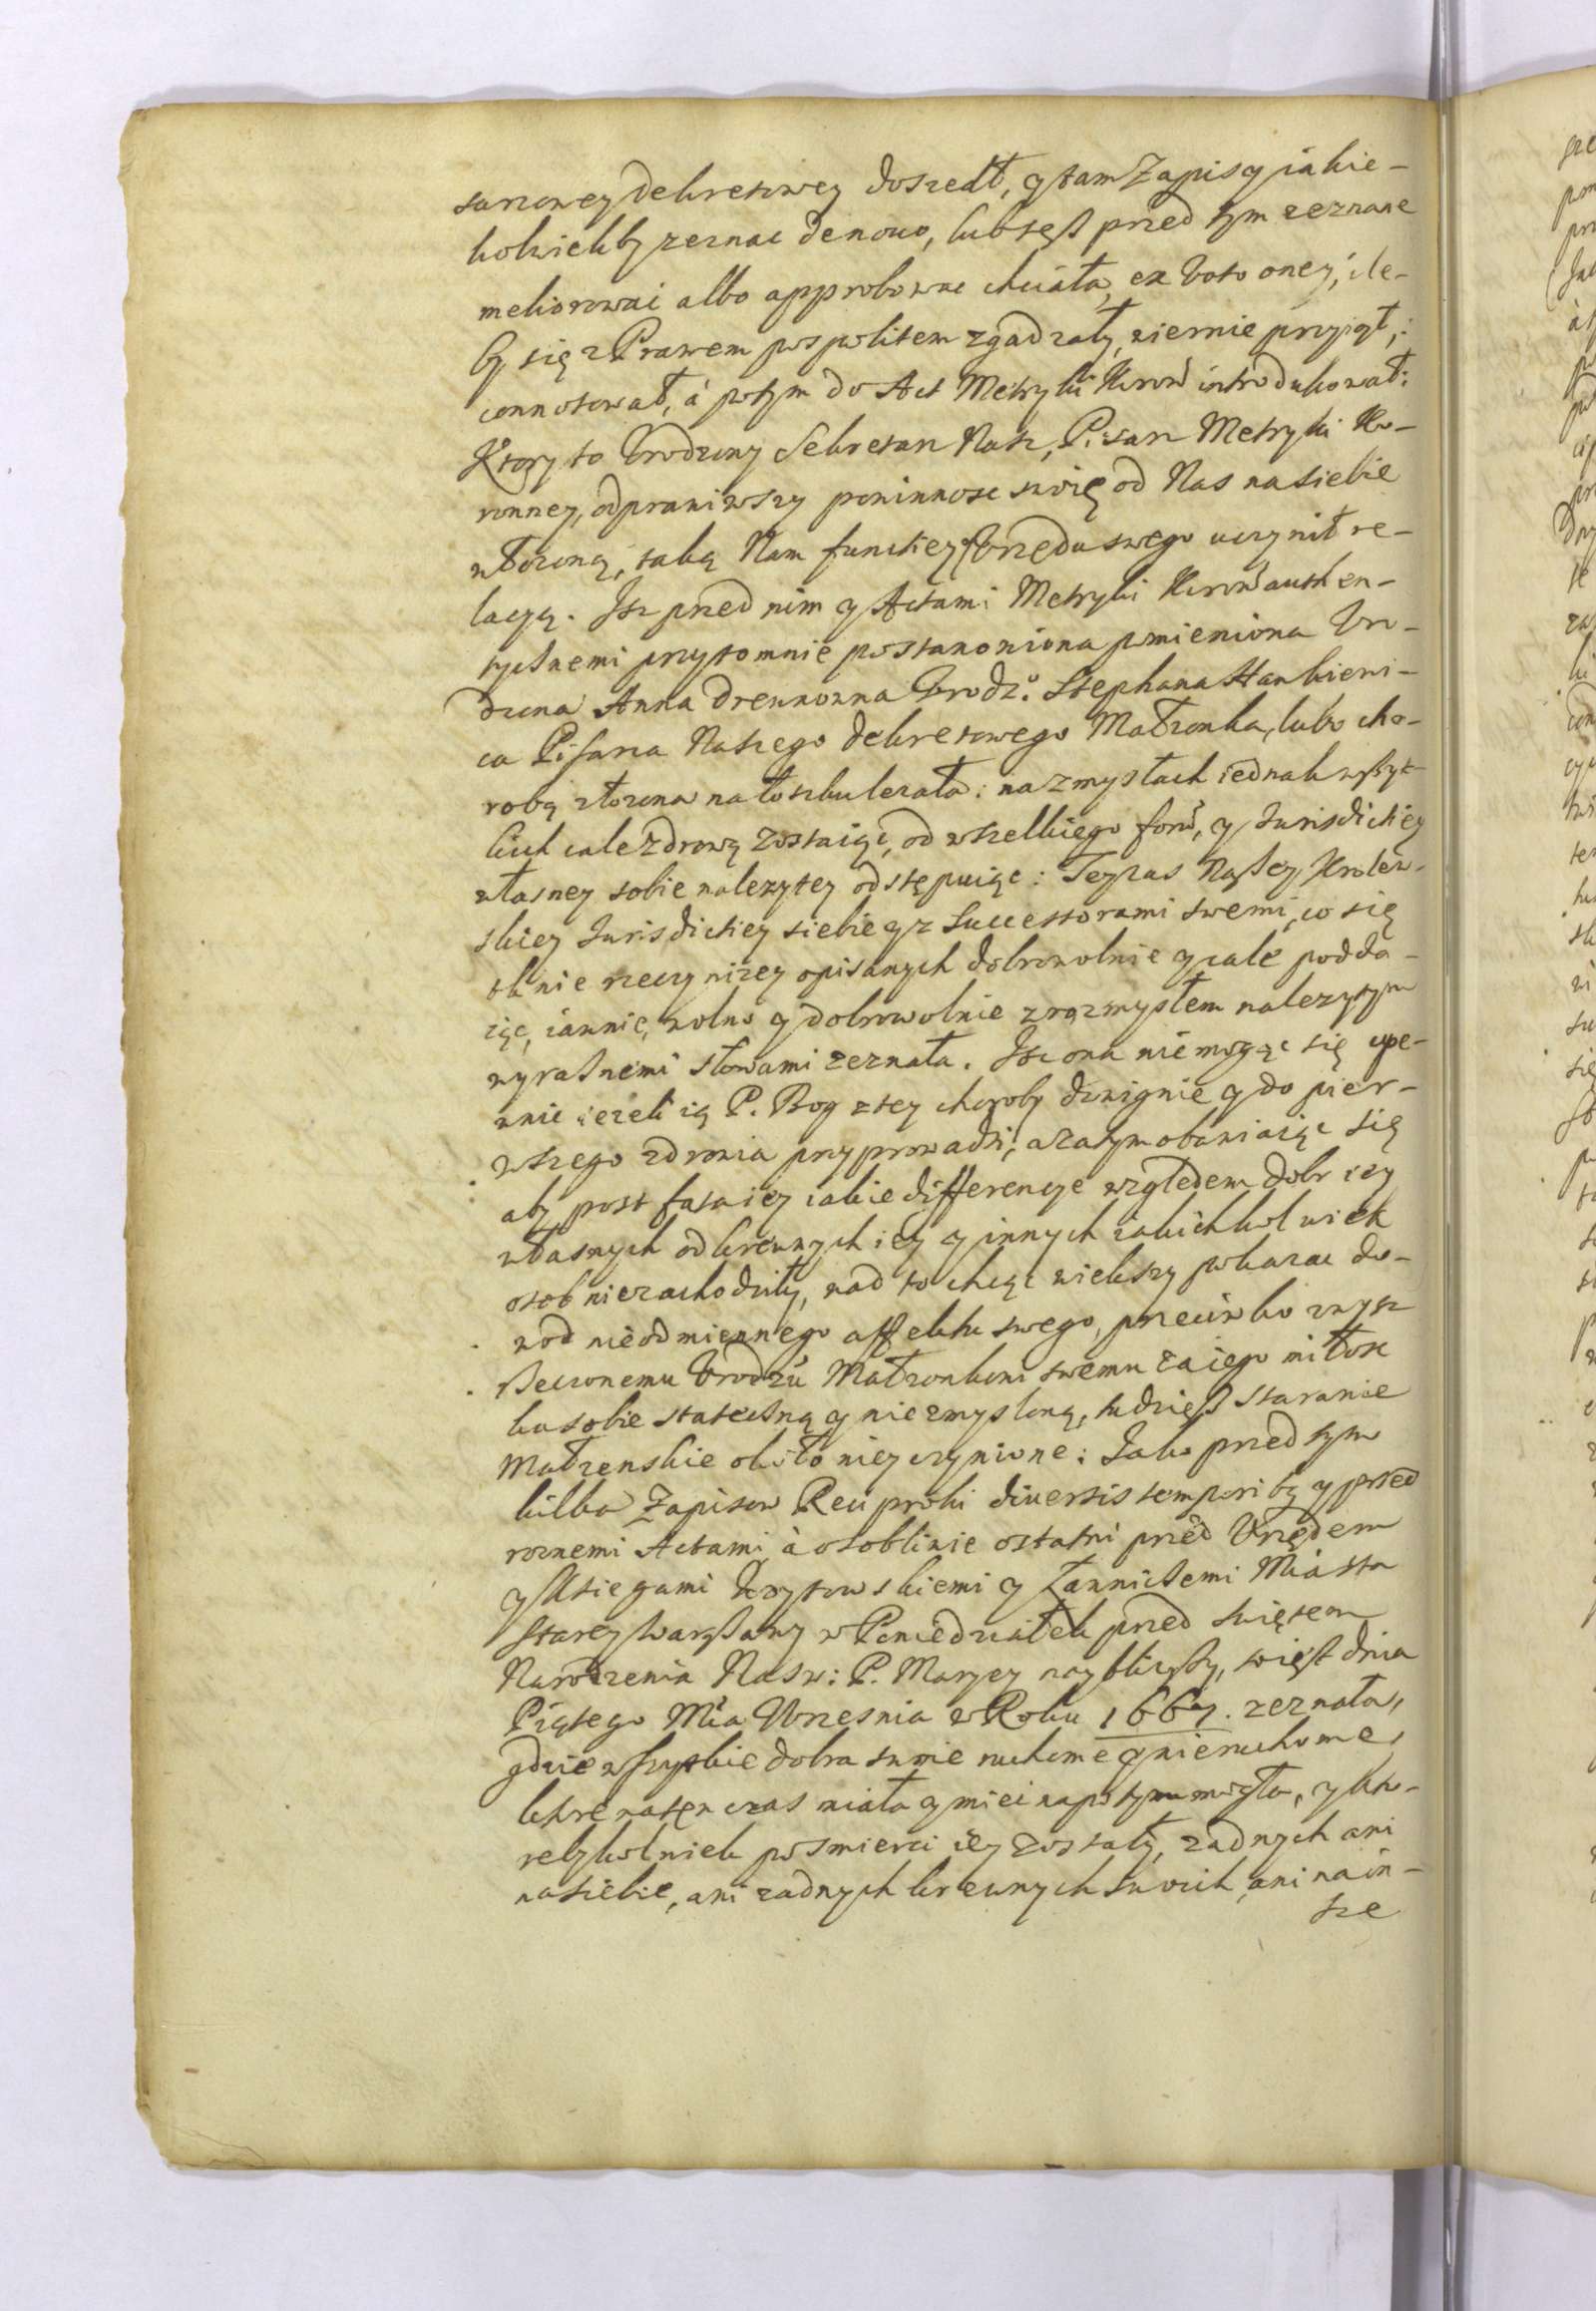 sarzowey dekretowey doszedł, y tam Zapisy iakie-
kolwiekby zeznac denouo, lub tesz przed tym zeznane
meliorowai albo approbowac chciała, ex Voto oney, ile-
by się z Prawem pospolitem zgadzały, wiernie przyiął,
connotował, á potym do Act Metryki Koroń introdukował:
Ktory to Vrodzony Sekretarz Nasz, Pisarz Metryki Ko-
ronney, odprawiwszy powinnosc swoię od Nas na siebie
włozoną, taką Nam funckiey y Vrzędu swego uczynił re-
lacyą. Isz przed nim y Actami Metryki Koroń authen-
tycznemi przytomnie postanowiona pomieniona Vro-
dzona Anna Drewnowna Vrodz.o Stephana Hankiewi-
ca Pisarza Naszego dekretowego Małzonka, lubo cho-
robą złozona na łoszku lezała: na zmysłach iednak wszyt-
kich cale zdrową zostaiąc, od wszelkiego forú, y Jurisdickiey
własney sobie nalezytey odstępuiąc: Teyzas Naszey Krolew-
skiey Jurisdickiey siebie y z Successorami swemi, co się
tknie rzeczy nizey opisanych dobrowolnie y cale podda-
iąc, iawnie, wolno y dobrowolnie z rozmysłem nalezytym
wyrasnemi słowami zeznała. Isz ona nie mogąc się upe-
wnic iezeli ią P. Bog z tey choroby dzwignie y do pier-
wszego zdrowia przyprowadzi; a zatym obawiaiąc się
aby post fata iey iakie differencye względem dobr iey
własnych od krewnych iey y innych iakichkolwiek
osob niezachodziły, nad to chcąc wiekszy pokazac do-
wod nieodmiennego affektu swego, przeciwko zwysz
rzeczonemu Vrodzú Małzonkowi swemu za iego miłosc
ku sobie stateczną y niezmysloną, tudziesz staranie
Małzenskie około niey czynione: Jako przed tym
kilka Zapisow Reciproki diuersis temporibq y przed
roznemi Actami, à osobliwie ostatni przed Vrzędem
y Ksiegami Woytowskiemi y Ławniczemi Miásta
Starey Warszawy w Poniedziałek przed swiętem
Narodzenia Nasw: P. Maryey nayblizszy, to iest dnia
Piątego Mca Wrzesnia w Roku 1667. zeznała,
gdzie wszystkie dobra swoie ruchome y nieruchome,
ktore na ten czas miała y miec na potym mogła, y kto-
rebykolwiek po smierci iey zostały, zadnych ani
na siebie, ani zadnych krewnych swoich, ani na in-
sze